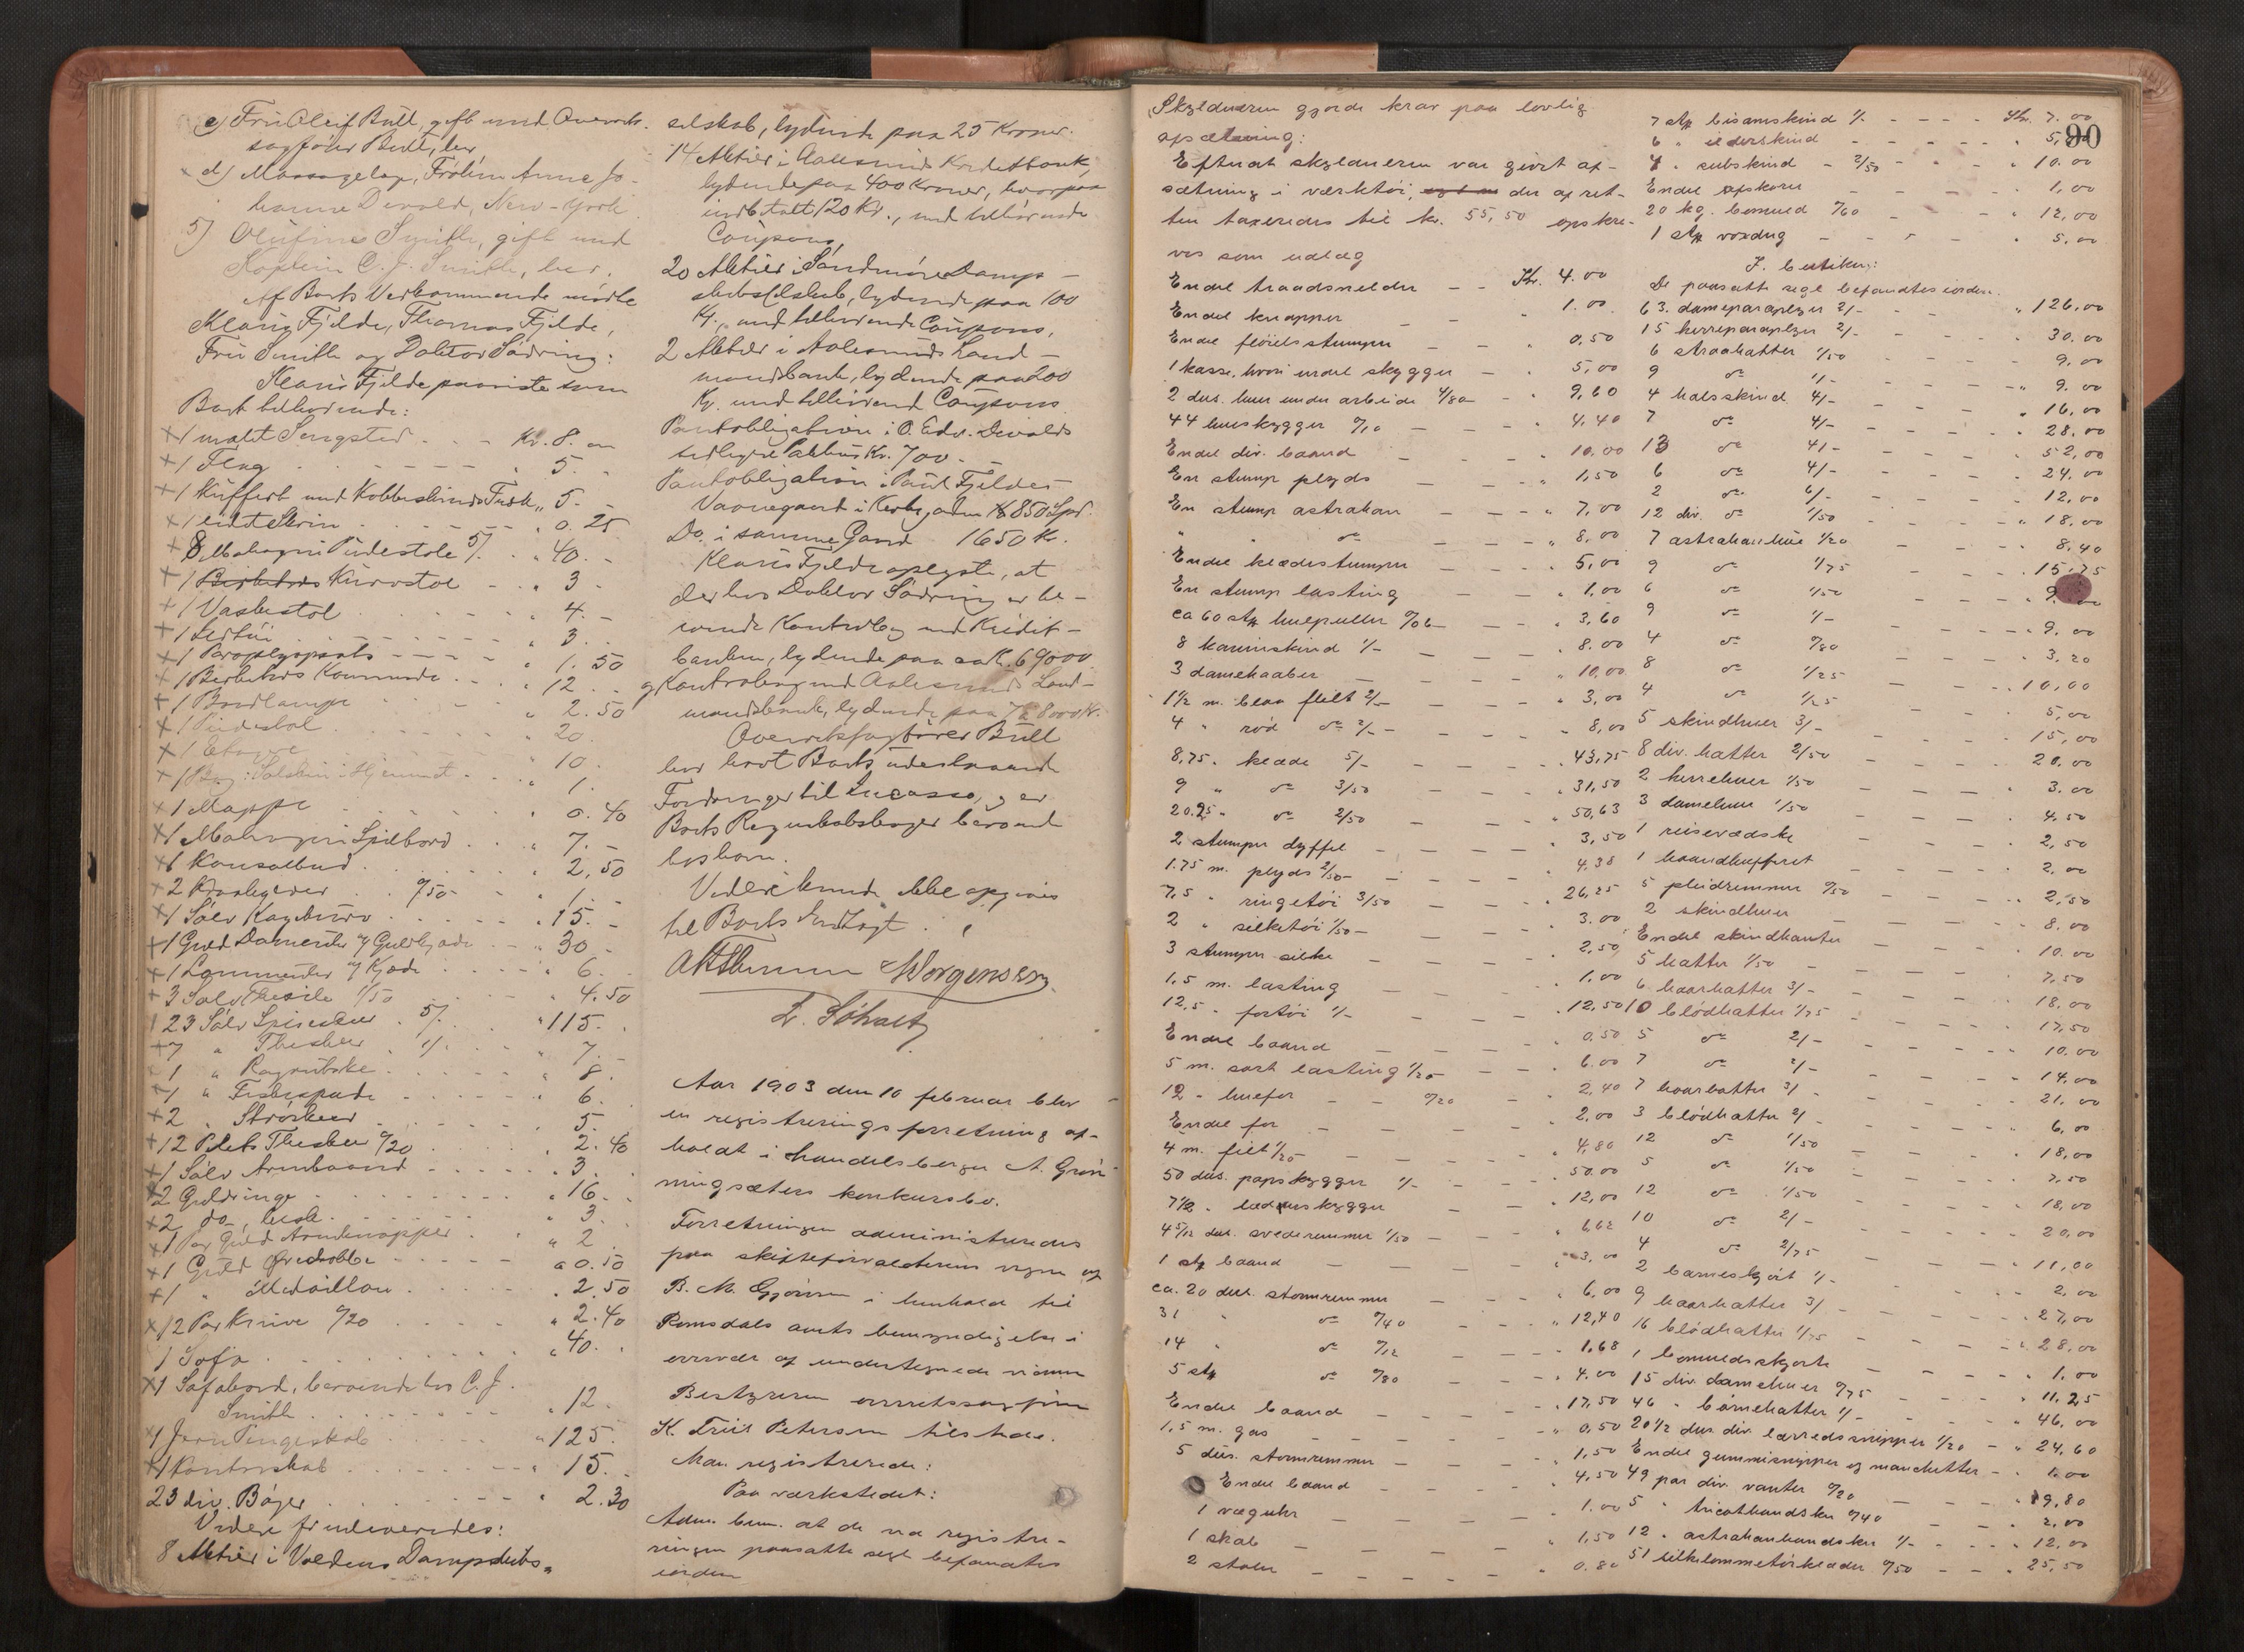 c) Fru Oleif Bull, gift med Overrets-
sagfører Bull, her
d) Massagelæge, Frøken Anna Jo-
hanne Devold, New-York
5) Olufine Smith, gift med
Kaptein C. J. Smith, her.
Af Boets Vedkommende mødte
Klaus Fjelde, Thomas Fjelde,
Fru Smith og Doktor Sødring:
Klaus Fjelde paaviste som
Boet tilhørende:
1 malet Sengsted Kr. 8.00
1 Flag 5.
1 Kuffert med Kobbeskinds 5.
1 lidet Skrin 0.25
8 Mahogni Pudestole 5/ 40.
1 Kurvstol 3
1 Vaskestol 4.
1 3.
1 1.50
1 Birketræs Kommode 12
1 Bordlampe 2.50
1 Pudestol 20.
1 Etagere 10.
1 Bog: Solskin i Hjemmet 1.
1 Mappe 0.40
1 Mahogni Spilbord 7.
1 Konsolbord 2,50
2 /50 1.
1 Sølv Kagekurv 15.
1 Guld Dameuhr og Guldkjæde 30
1 Lommeuhr og Kjæde 6.
3 Sølv 1/50 4.50
23 Sølv Spiseskeer 5/ 115.
7 " Theskeer 1/ 7.
1 " Ragoutske 8.
1 " Fiskespade 6.
2 " Strøskeer 5.
12 Plets Theskeer /20 2.40
1 Sølv Armbaand 3.
2 Guldringe 16.
2 do, 3.
1 Par Guld Armknapper 2
1 Guld 0.50
1 " Medaillon 2.50
12 Par Knive /20 2.40
1 Sofa 40.
1 Sofabord, beroende hos C. J.
Smith 12.
1 Jern Pengeskab 125.
1 Kontorskab 15.
23 div. Bøger 2.30
Videre fremleveredes:
8 Aktier i Voldens Dampskibs-
selskab, lydende paa 25 Kroner.
14 Aktier i Aalesunds Kreditbank,
lydende paa 400 Kroner, hvorpaa
indbetalt 120 Kr., med tilhørende
Coupons,
20 Aktier i Søndmøre Damp-
skibsselskab, lydende paa 100
Kr., med tilhørende Coupons,
2 Aktier i Aalesunds Land-
mandsbank, lydende paa 200
Kr. med tilhørende Coupons.
Pantobligation i O. Edv. Devolds
Kr. 700.
Pantobligation i Paul Fjeldes
Vaanegaard i 850 Spd.
Do. i samme Gaard 1650 Kr.
Klaus Fjelde oplyste, at
der hos Doktor Sødring er be-
roende Kontrabog med Kredit-
banken, lydende paa ca Kr. 69000
og Kontrabog med Aalesunds Land-
mandsbank, lydende paa 8000 Kr.
Overretssagfører Bull
har havt Boets udestaaende
Fordringer til Incasso, og er
Boets Regnskabsbøger beroende
hos ham.
Videre kunde ikke opgives
til Boets Indtægt.
Aar 1903 den 10 februar blev
en registreringsforretning af-
holdt i handelsborger A. Grøn-
ningsæters konkursbo.
Forretningen administreredes
paa skifteforvalterens vegne af
B. M. Gjørsen i henhold til
Romsdals amts bemyndigelse i
overvær af undertegnede vidner
Bestyreren overretssagfører
K. Friis Petersen tilstede.
Man registrerede:
Paa værkstedet:
Adm. bem. at de ved registre-
ringen paasatte segl befandtes
iorden
90
Skyldneren gjorde krav paa lovlig
afsætning:
Efterat skyldneren var givet af-
sætning i værktøi, der af ret-
ten taxeredes til kr. 55,50 opskre-
ves som udlæg
Endel traadsnelder Kr. 4.00
Endel knapper 1.00
Endel fløielsstumper 0,50
1 kasse, hvori endel skygger 5,00
2 dus. huer under arbeide 4/80 9,60
44 hueskygger /10 4,40
Endel div. baand 10,00
En stump plyds 1,50
En stump astrakan 7,00
" " do 8,00
Endel klædestumper 5,00
En stump lasting 1,00
ca 60 stk huepuller /06 3,60
8 kaninskind 1/- 8.00
3 damekaaber 10,00
1 1/2 m. blaa filt 2/- 3,00
4 " rød do 2/- 8,00
8,75 " klæde 5/- 43,75
9 " do 3/50 31,50
20.25 " do 2/50 50,63
2 stumper dyffel 3,50
1.75 m. plyds 2/50 4,38
7,5 " ringetøi 3/50 26,25
2 " silketøi 1/50 3.00
3 stumper silke 2,50
1,5 m. lasting 1.00
12,5 " fortøi 1/- 12,50
Endel baand 0,50
5 m. sort lasting 1/20 6.00
12 " huefor /20 2,40
Endel for 2.00
4 m. filt 1/20 4,80
50 dus. papskygger 1/- 50.00
7 1/2 " læderskygger 12,00
4 5/12 dus. svederemmer 1/50 6,62
1 stk baand 3.00
ca. 20 dus. stormremmer 6,00
31 " do /40 12,40
14 " do /12 1,68
5 stk do /80 4.00
Endel baand 17,50
1,5 m. gas 0,50
5 dus. stormremmer 1,50
Endel baand 4,50
1 væguhr 1.00
1 skab 1,50
2 stoler 0.80
7 stk bisamskind 1/- Kr. 7.00
6 " ilderskind 5,
4 " subskind 2/50 10.00
Endel afskaar 1,00
20 kg. bomuld /60 12,00
1 stk voxdug 5,00
I butiken:
De paasatte segl befandtes iorden.
63 dameparaplyer 2/- 126,00
15 herreparaplyer 2/- 30.00
6 straahatter 1/50 9.00
9 do 1/- 9.00
4 halsskind 4/- 16,00
7 do 4/- 28,00
13 do 4/- 52,00
6 do 4/- 24,00
2 do 6/- 12,00
12 div. do 1/50 18,00
7 astrakanhue 1/20 8,40
9 do 1/75 15,75
6 do 1/50 9.00
9 do 1/- 9.00
4 do /80 3,20
8 do 1/25 10,00
4 do 1/25 5,00
5 skindhuer 3/- 15,00
8 div. hatter 2/50 20.00
2 herrehuer 1/50 3.00
3 damehuer 1/50 4,50
1 reisevædske 2,50
1 haandkuffert 2.00
5 pleidremmer /50 2,50
2 skindhuer 8.00
Endel skindkanter 10.00
5 hatter 1/50 7,50
6 haarhatter 3/- 18.00
10 blødhatter 1/75 17,50
5 do 2/- 10.00
7 do 2/- 14,00
7 haarhatter 3/- 21.00
3 blødhatter 2/- 6,00
12 do 1/50 18,00
5 do 1/50 7,50
12 do 1/50 18,00
10 do 2/- 20,00
4 do 2/75 11,00
2 barneskjørt 1/- 2,00
9 haarhatter 3/- 27,00
16 blødhatter 1/75 28,00
1 bomuldsskjorte 1.00
15 div. damehuer /75 11.25
46 " børnehatter 1/- 46,00
20 1/2 dus div. lærredssnipper 1/20 24,60
Endel gummisnipper og manchetter 1.00
49 par div. vanter /20 9,80
5 " tricothandsker /40 2,00
12 " astrakanhandsker 1/- 12,00
51 silkelommetørklæder /50 25,50